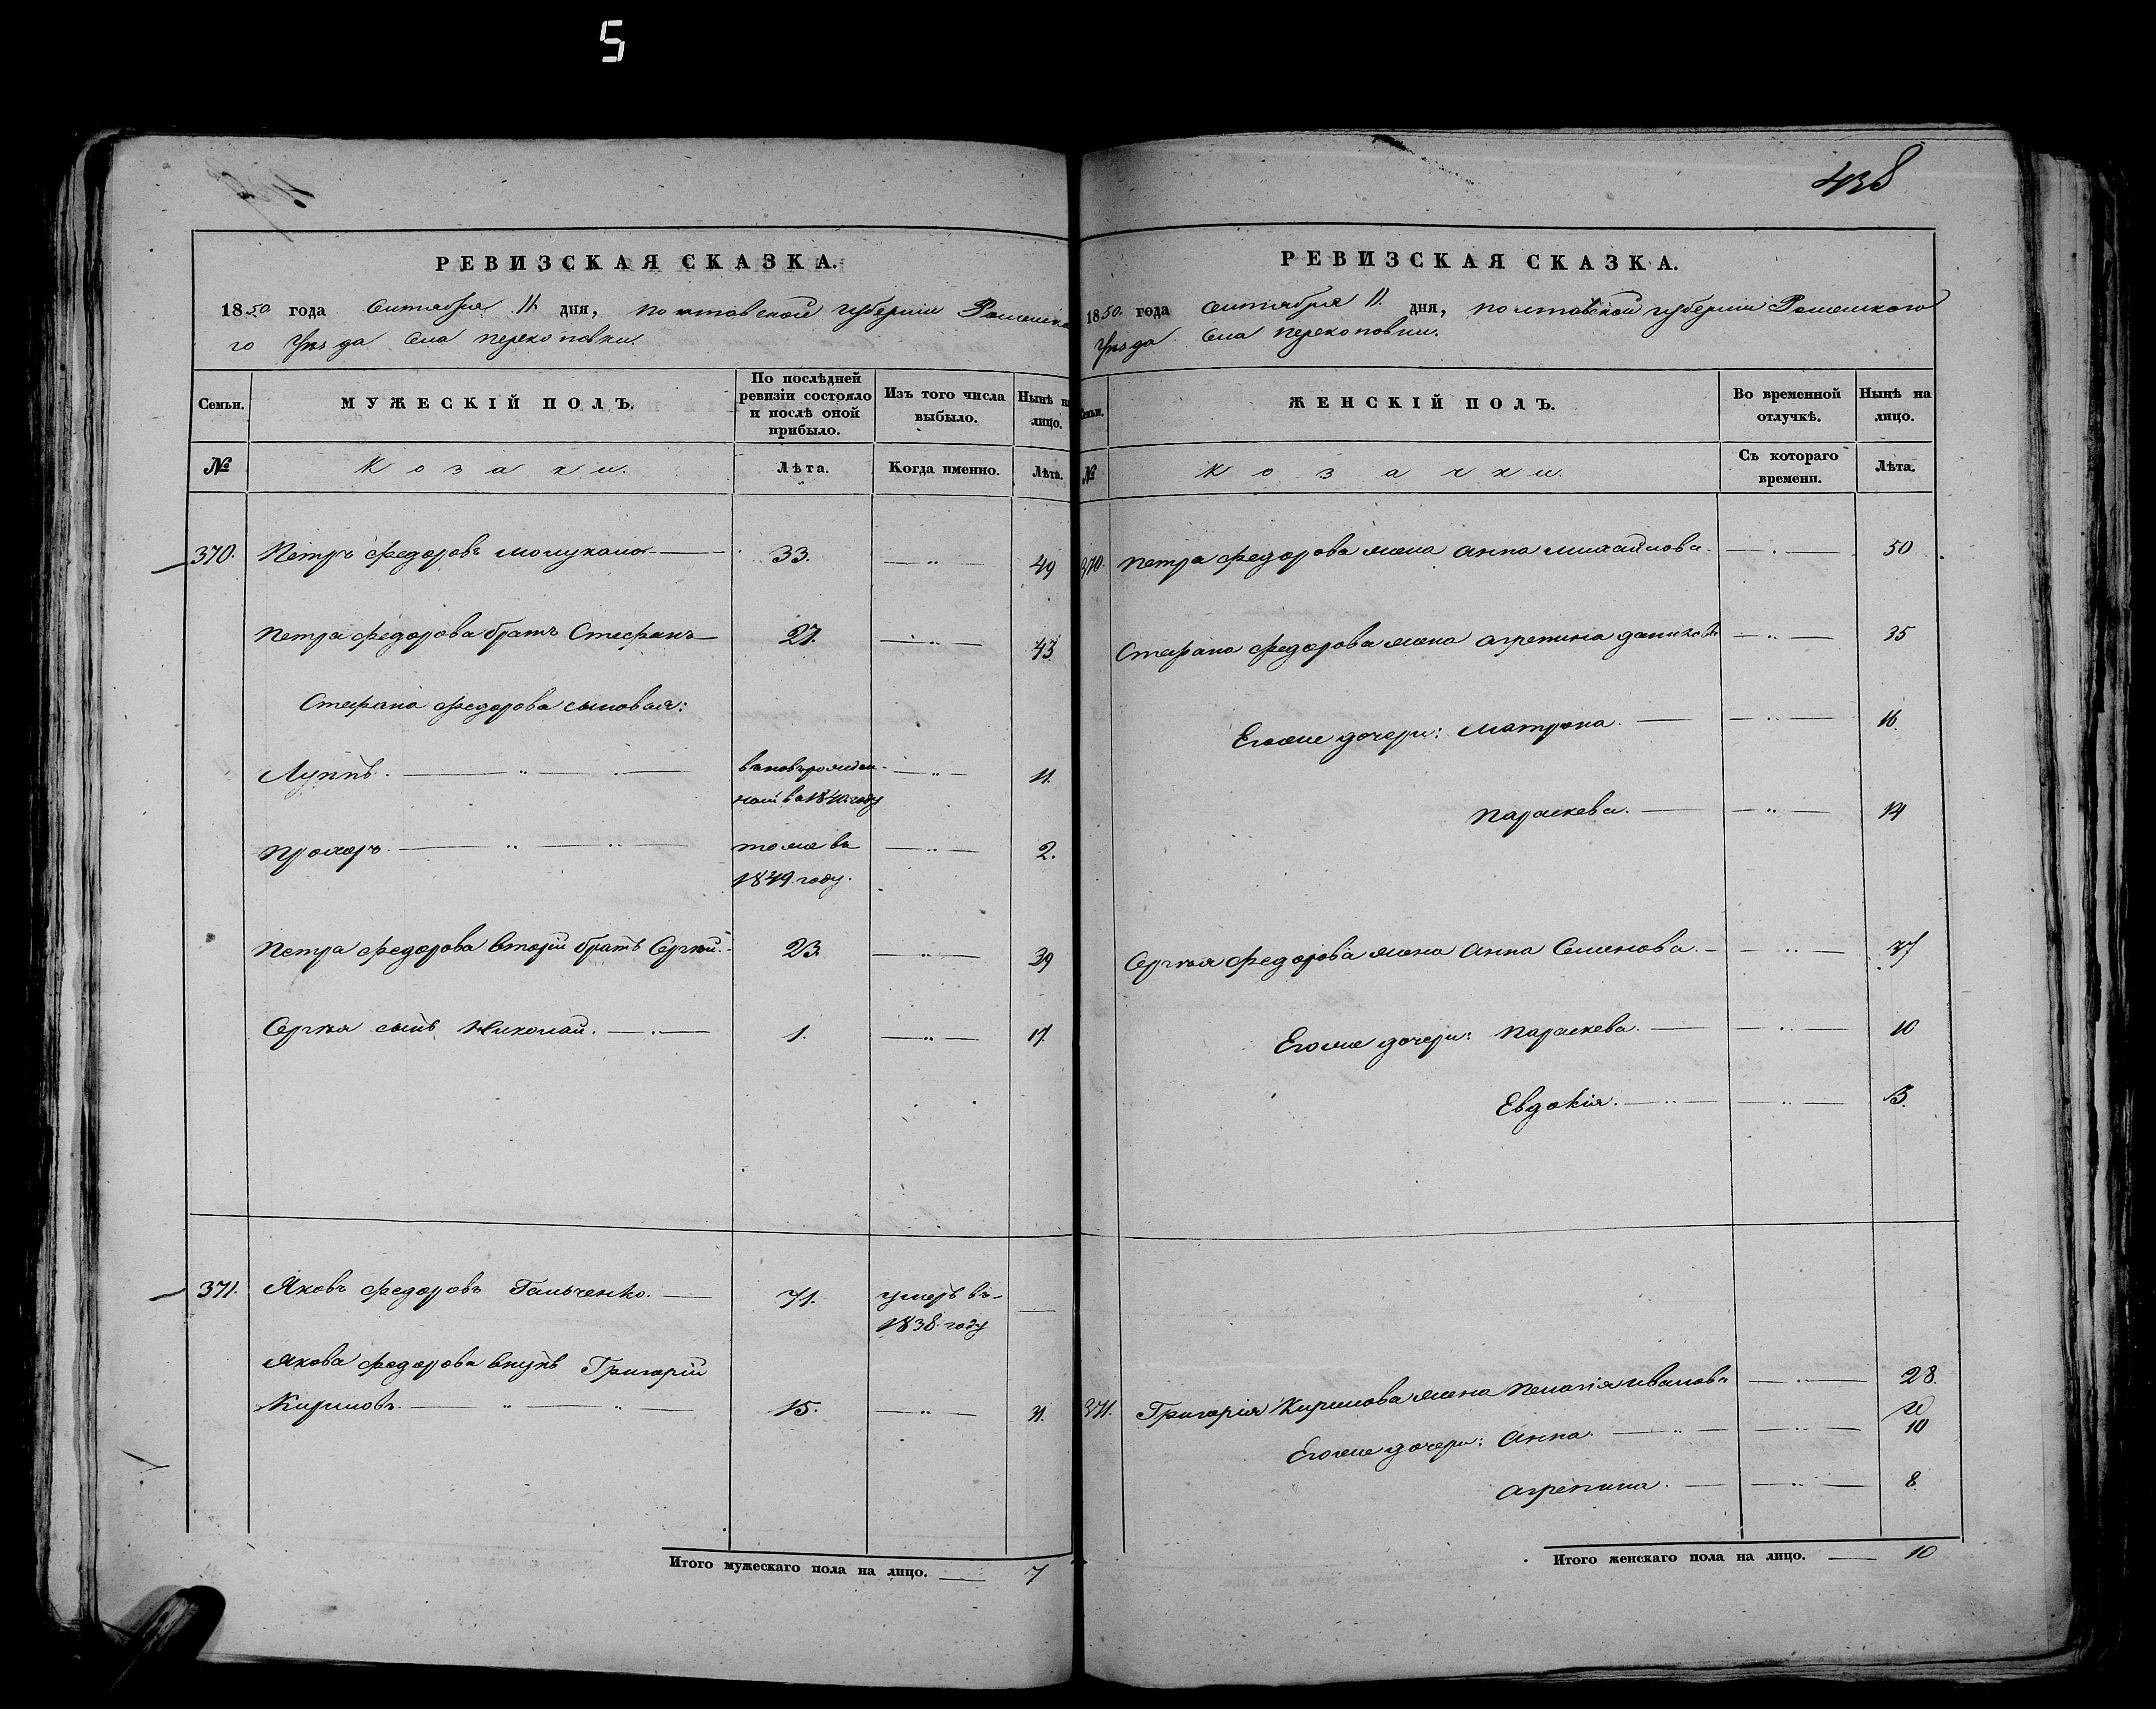 5
438
РЕВИЗСКАЯ СКАЗКА.
1850 года Сентября 11 дня, Полтавской губерніи Роменска
го Уезда Села Перекоповки.
Семьи.
МУЖЕСКІЙ ПОЛЪ.
По послѣдней ревизіи состояло и послѣ оной прибыло.
Изъ того числа выбыло.
Нынѣ на лицо.
№
Козаки.
Лѣта.
Когда именно.
Лѣта.
370. Петръ Федоровъ 33. 49
Петра Федорова братъ Стефанъ 27. 43
Стефана Федорова сыновья:
Луппъ. 11.
1840 году
Прохоръ. тоже въ 2.
1849. году.
Петра Федорова вторый братъ Сергѣй. 23. 39
Сергѣя сынъ Николай. 1. 17.
371. Яковъ Федоровъ Гальченко. 71. умеръ въ
1838. году
Якова Федорова внукъ Григорій
Кириловъ. 15. 31.
Итого мужескаго пола на лицо. 7
РЕВИЗСКАЯ СКАЗКА.
1850 года Сентября 11. дня, Полтавской губерніи Роменского
Уезда Села Перекоповки.
Семьи.
ЖЕНСКІЙ ПОЛЪ.
Во временной отлучкѣ.
Нынѣ на лицо.
№
Козачки.
Съ котораго времени.
Лѣта.
370. Петра Федорова жена Анна Михайлова. 50
Стефана Федорова жена Агрепина Данилова 35
Егоже дочери: Матрона. 16.
Параскева. 14
Сергѣя Федорова жена Анна Семенова. 37
Егоже дочери: Параскева. 10
Евдокія. 3.
371. Григорія Кирилова жена Пелагія Иванова 28.
Егоже дочери: Анна. 10
Агрепина. 8.
Итого женскаго пола на лицо. 10